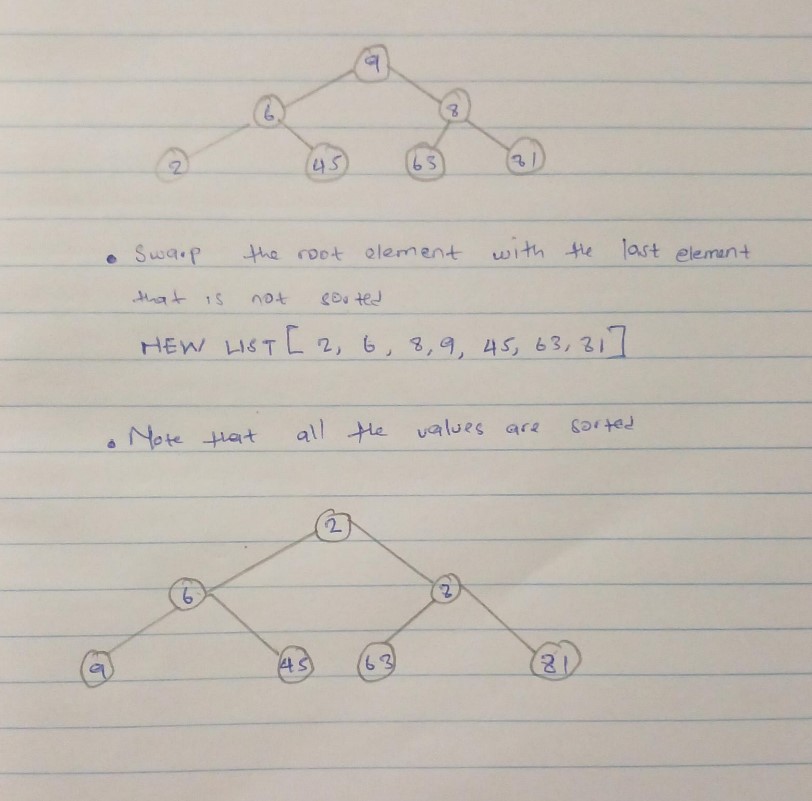 9
6 8
2 45 63 81
• Swap the root element with the last element
that is not sorted
NEW LIST [ 2, 6, 8, 9, 45, 63, 81 ]
• Note that all the values are sorted
2
6 8
9 45 63 81